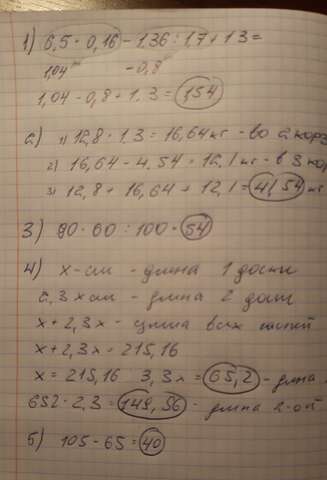 1) 6,5 · 0,16 - 1,36 : 1,7 + 1,3 =
1,04 - 0,8
1,04 - 0,8 + 1,3 = 1,54
2) 1) 12,8 · 1,3 = 16,64 кг - во 2 кор
2) 16,64 - 4,54 = 12,1 кг - в 3 кор
3) 12,8 + 16,64 + 12,1 = 41,54 кг
3) 90 · 60 : 100 = 54
4) x - см - длина 1 доски
2,3 x см - длина 2 доск
x + 2,3 x - длина всех
x + 2,3 x = 215,16
x = 215,16 : 3,3 x = 65,2 - длина
652 · 2,3 = 149,96 - длина 2-ой
5) 105 - 65 = 40